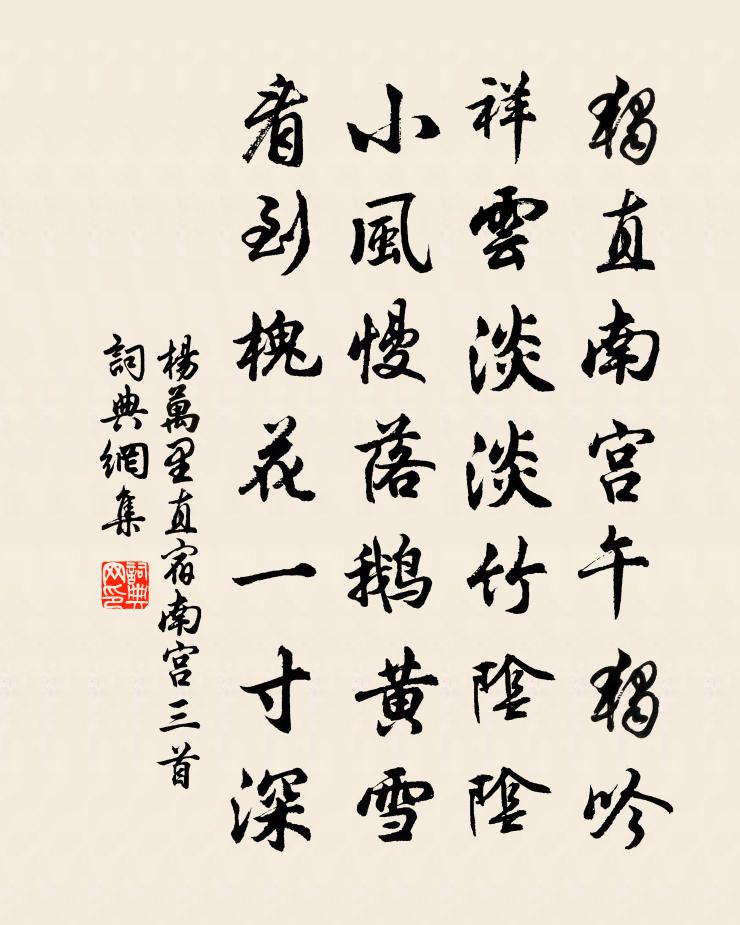 獨直南宫午獨吟
祥雲淡淡竹陰陰
小風慢落鵝黄雪
看到槐花一寸深
楊萬里直宿南宫三首
詞典網集
詞典网印